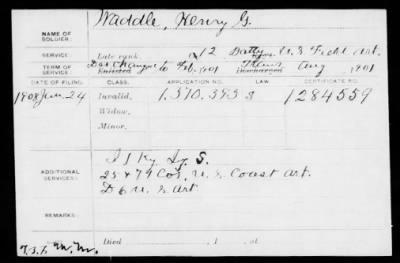 NAME OF SOLDIER: Waddle, Henry G.
SERVICE: Late rank, 12 Batty U.S. Field Art.
TERM OF SERVICE: Enlisted Discharged Aug 1901
DATE OF FILING. CLASS. APPLICATION NO. LAW. CERTIFICATE NO.
1908 Jan. 24 Invalid, 1,370,393 S 1284559
Widow,
Minor,
ADDITIONAL SERVICES: I 1 Ky Inf. S.
25 & 79 Cos, U.S. Coast Art.
D 6 U.S. Art
REMARKS:
Died , 1 , at